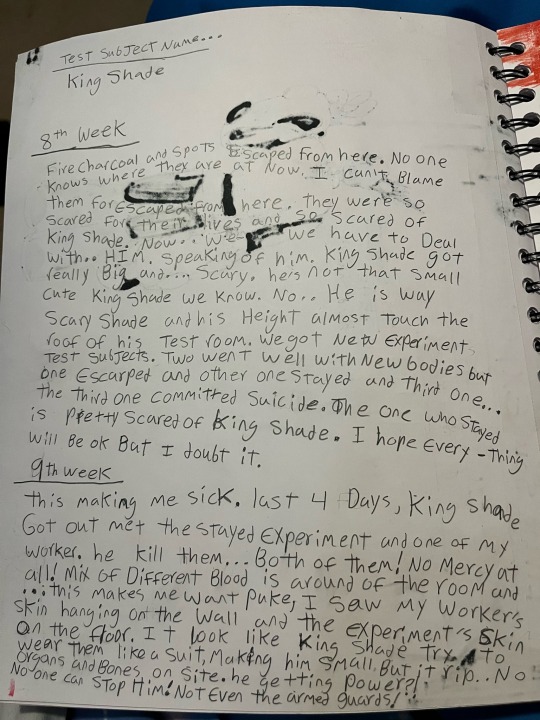 Test Subject Name...
King Shade
8th week
Fire Charcoal and Spots Escaped from here. No one
knows where they are at Now. I can't Blame
them for Escaped from here. they were so
scared for their lives and so scared of
King Shade. Now... we we have to Deal
with.. HIM. Speaking of him. King Shade got
really Big and... Scary. he's not that small
cute King Shade we know. No.. He is way
Scary Shade and his Height almost touch the
roof of his Test room. We got New Experiment
Test Subjects. Two went well with New bodies but
one Escarped and other one stayed and Third one...
the third one committed Suicide. The one who stayed
is pretty scared of King Shade. I hope Every-thing
will Be ok But I doubt it.
9th week
This making me sick. last 4 Days, King Shade
Got out met the stayed Experiment and one of my
worker. he kill them... Both of them! No Mercy at
all! Mix of Different Blood is around of the room and
...this makes me want puke, I saw my Worker's
skin hanging on the wall and the experiment's skin
on the floor. It look like King Shade try to
wear them like a suit, Making him small. But it rip.. No
organs and Bones on site. he getting power?!
No-one can stop Him! Not Even the armed guards!!